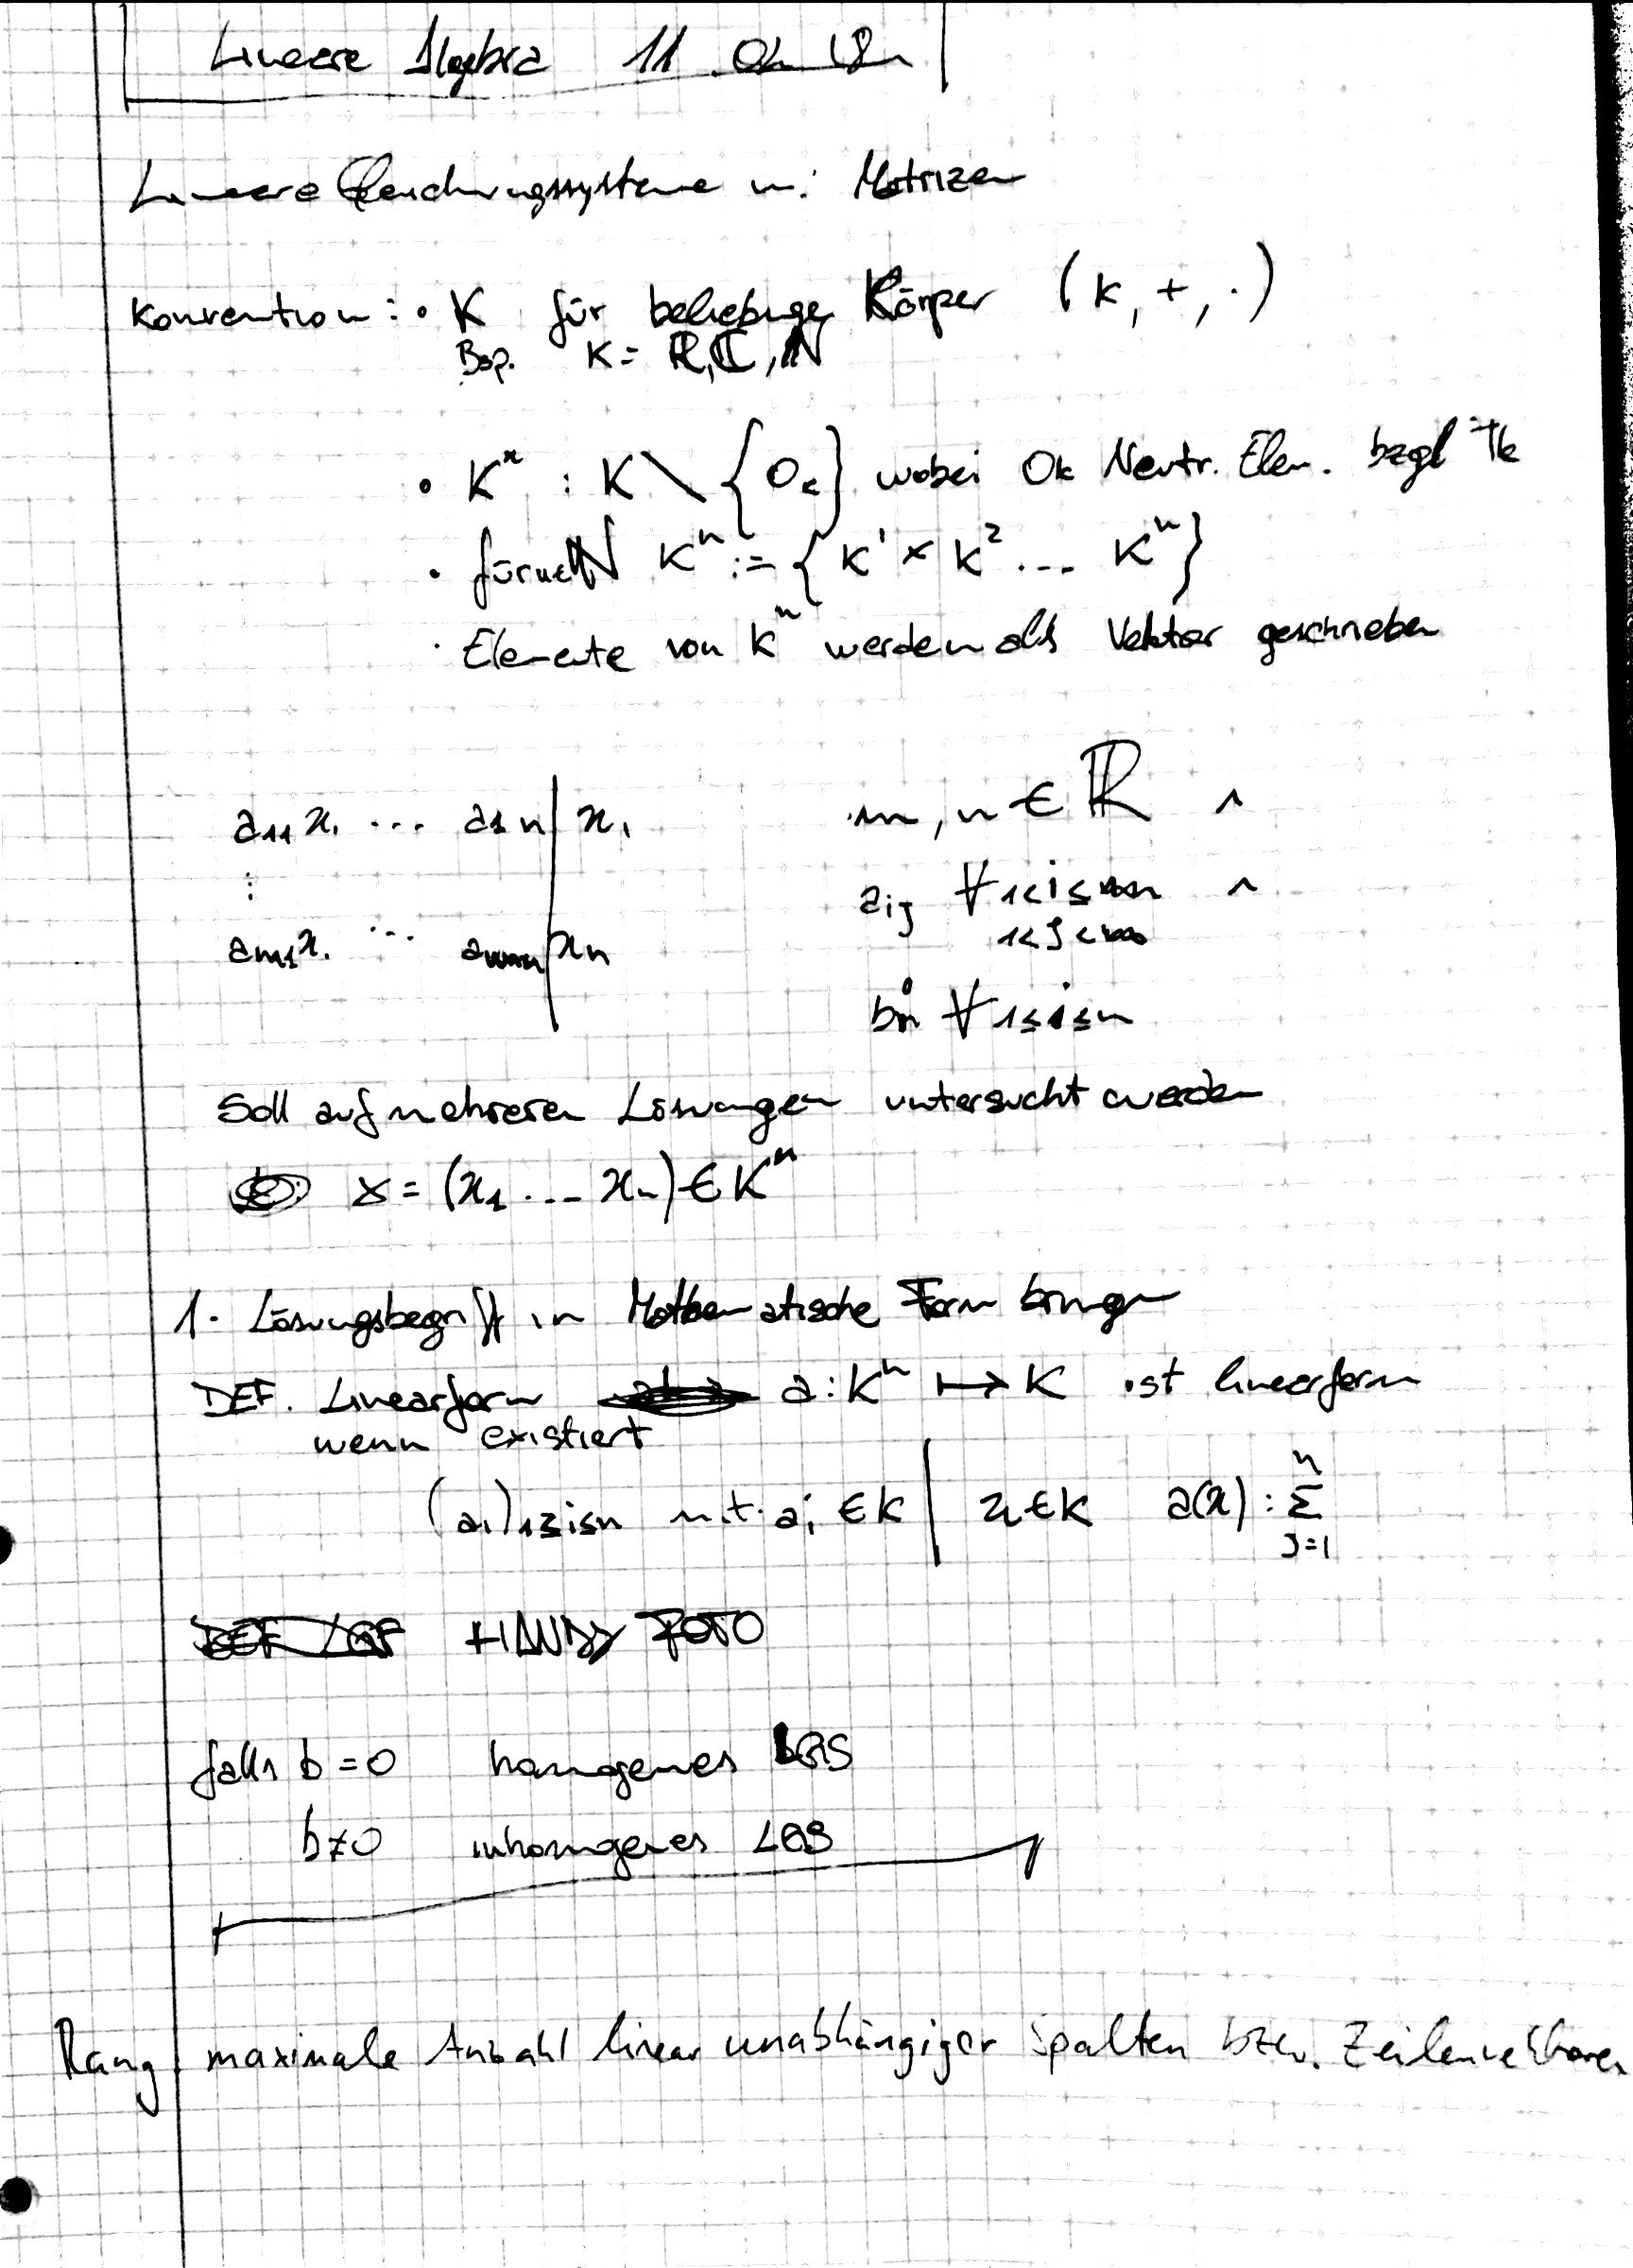 Lineare Algebra 11.
Lineare Gleichungssysteme u. Matrizen
Konvention: • K für beliebige Körper (K, +, ·)
Bsp. K = ℝ, ℂ, ℕ
• K* : K \ {0ₖ} wobei 0k Neutr. Elem. bzgl +k
• für n∈ℕ Kⁿ := {K¹ × K² ... Kⁿ}
· Elemente von Kⁿ werden als Vektor geschrieben
a₁₁x₁ ... a₁n | x₁ m, n ∈ ℝ ∧
⋮ aij ∀ 1<i≤m ∧
am₁x₁ ... amn | xn 1<j<
bi ∀ 1≤i≤n
Soll auf mehreren Lösungen untersucht werden
x = (x₁ ... xn) ∈ Kⁿ
1. Lösungsbegriff in Mathematische Form bringen
DEF. Linearform a : Kⁿ ↦ K ist linearform
wenn existiert
(ai)1≤i≤n mit ai ∈ K | x ∈ K a(x) : Σ
n
j=1
HANDY FOTO
falls b = 0 homogenes LGS
b ≠ 0 inhomogenes LGS
Rang maximale Anzahl linear unabhängiger Spalten bzw. Zeilenvektoren